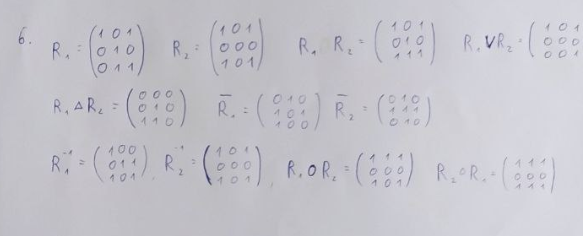 6. R₁ = (1 0 1 / 0 1 0 / 0 1 1) R₂ = (1 0 1 / 0 0 0 / 1 0 1) R₁ R₂ = (1 0 1 / 0 1 0 / 1 1 1) R₁ V R₂ = (1 0 1 / 0 0 0 / 0 0 1)
R₁ Δ R₂ = (0 0 0 / 0 1 0 / 1 1 0) R̅₁ = (0 1 0 / 1 0 1 / 1 0 0) R̅₂ = (0 1 0 / 1 1 1 / 0 1 0)
R₁⁻¹ = (1 0 0 / 0 1 1 / 1 0 1), R₂⁻¹ = (1 0 1 / 0 0 0 / 1 0 1), R₁ O R₂ = (1 1 1 / 0 0 0 / 1 0 1) R₂ O R₁ = (1 1 1 / 0 0 0 / 1 1 1)